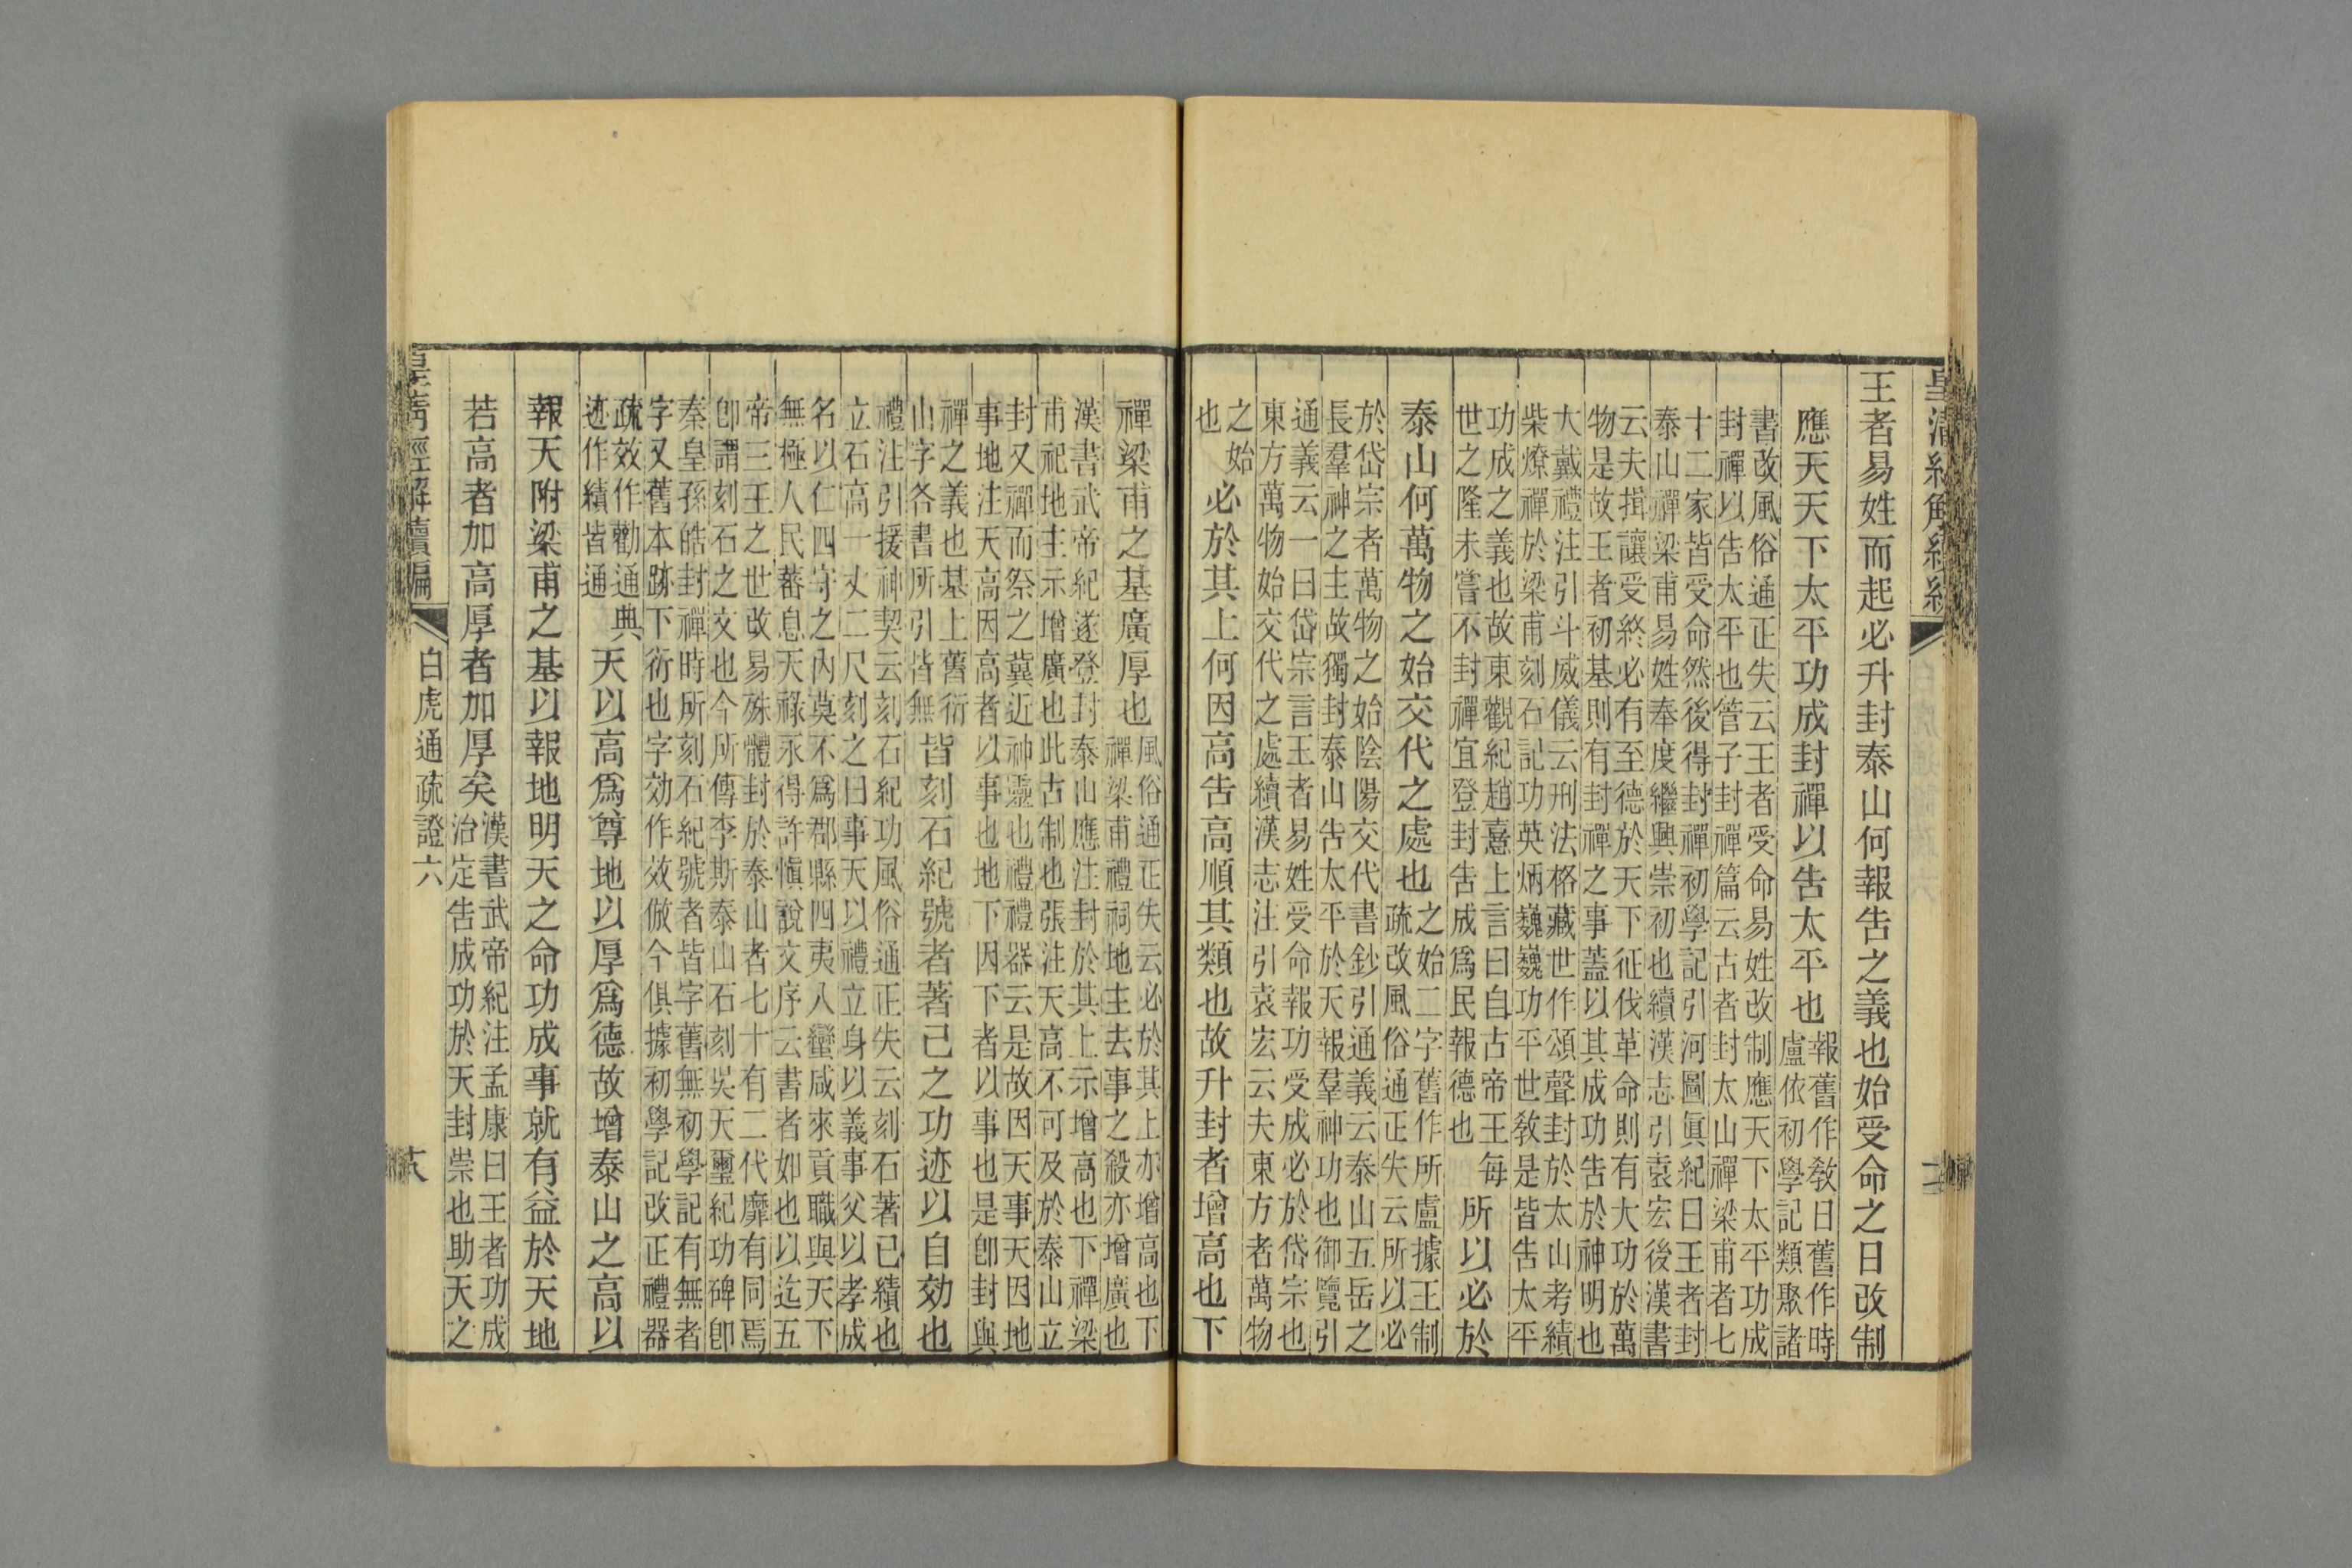 王者易姓而起必升封泰山何報告之義也始受命之日改制
應天天下太平功成封禪以告太平也
報舊作敎日舊作時
盧依初學記類聚諸
書改風俗通正失云王者受命易姓改制應天下太平功成
封禪以告太平也管子封禪篇云古者封太山禪梁甫者七
十二家皆受命然後得封禪初學記引河圖眞紀曰王者封
泰山禪梁甫易姓奉度繼興崇初也續漢志引袁宏後漢書
云夫揖讓受終必有至德於天下征伐革命則有大功於萬
物是故王者初基則有封禪之事蓋以其成功告於神明也
大戴禮注引斗威儀云刑法格藏世作頌聲封於太山考績
柴燎禪於梁甫刻石記功英炳巍巍功平世敎是皆告太平
功成之義也故東觀紀趙憙上言曰自古帝王每
世之隆未嘗不封禪宜登封告成爲民報德也
所以必於
泰山何萬物之始交代之處也
之始二字舊作所盧據王制
疏改風俗通正失云所以必
於岱宗者萬物之始陰陽交代書鈔引通義云泰山五岳之
長羣神之主故獨封泰山告太平於天報羣神功也御覽引
通義云一曰岱宗言王者易姓受命報功受成必於岱宗也
東方萬物始交代之處續漢志注引袁宏云夫東方者萬物
之始
也
必於其上何因高告高順其類也故升封者增高也下
禪梁甫之基廣厚也
風俗通正失云必於其上亦增高也下
禪梁甫禮祠地主去事之殺亦增廣也
漢書武帝紀遂登封泰山應注封於其上示增高也下禪梁
甫祀地主示增廣也此古制也張注天高不可及於泰山立
封又禪而祭之冀近神靈也禮禮器云是故因天事天因地
事地注天高因高者以事也地下因下者以事也是卽封與
禪之義也基上舊衍
山字各書所引皆無
皆刻石紀號者著己之功迹以自効也
禮注引援神契云刻石紀功風俗通正失云刻石著已績也
立石高一丈二尺刻之曰事天以禮立身以義事父以孝成
名以仁四守之內莫不爲郡縣四夷八蠻咸來貢職與天下
無極人民蕃息天祿永得許愼說文序云書者如也以迄五
帝三王之世改易殊體封於泰山者七十有二代靡有同焉
卽謂刻石之文也今所傳李斯泰山石刻吳天璽紀功碑卽
秦皇孫皓封禪時所刻石紀號者皆字舊無初學記有無者
字又舊本跡下衍也字効作效倣今俱據初學記改正禮器
疏效作勸通典
迹作績皆通
天以高爲尊地以厚爲德故增泰山之高以
報天附梁甫之基以報地明天之命功成事就有益於天地
若高者加高厚者加厚矣
漢書武帝紀注孟康曰王者功成
治定告成功於天封崇也助天之
皇清經解續編
白虎通疏證六